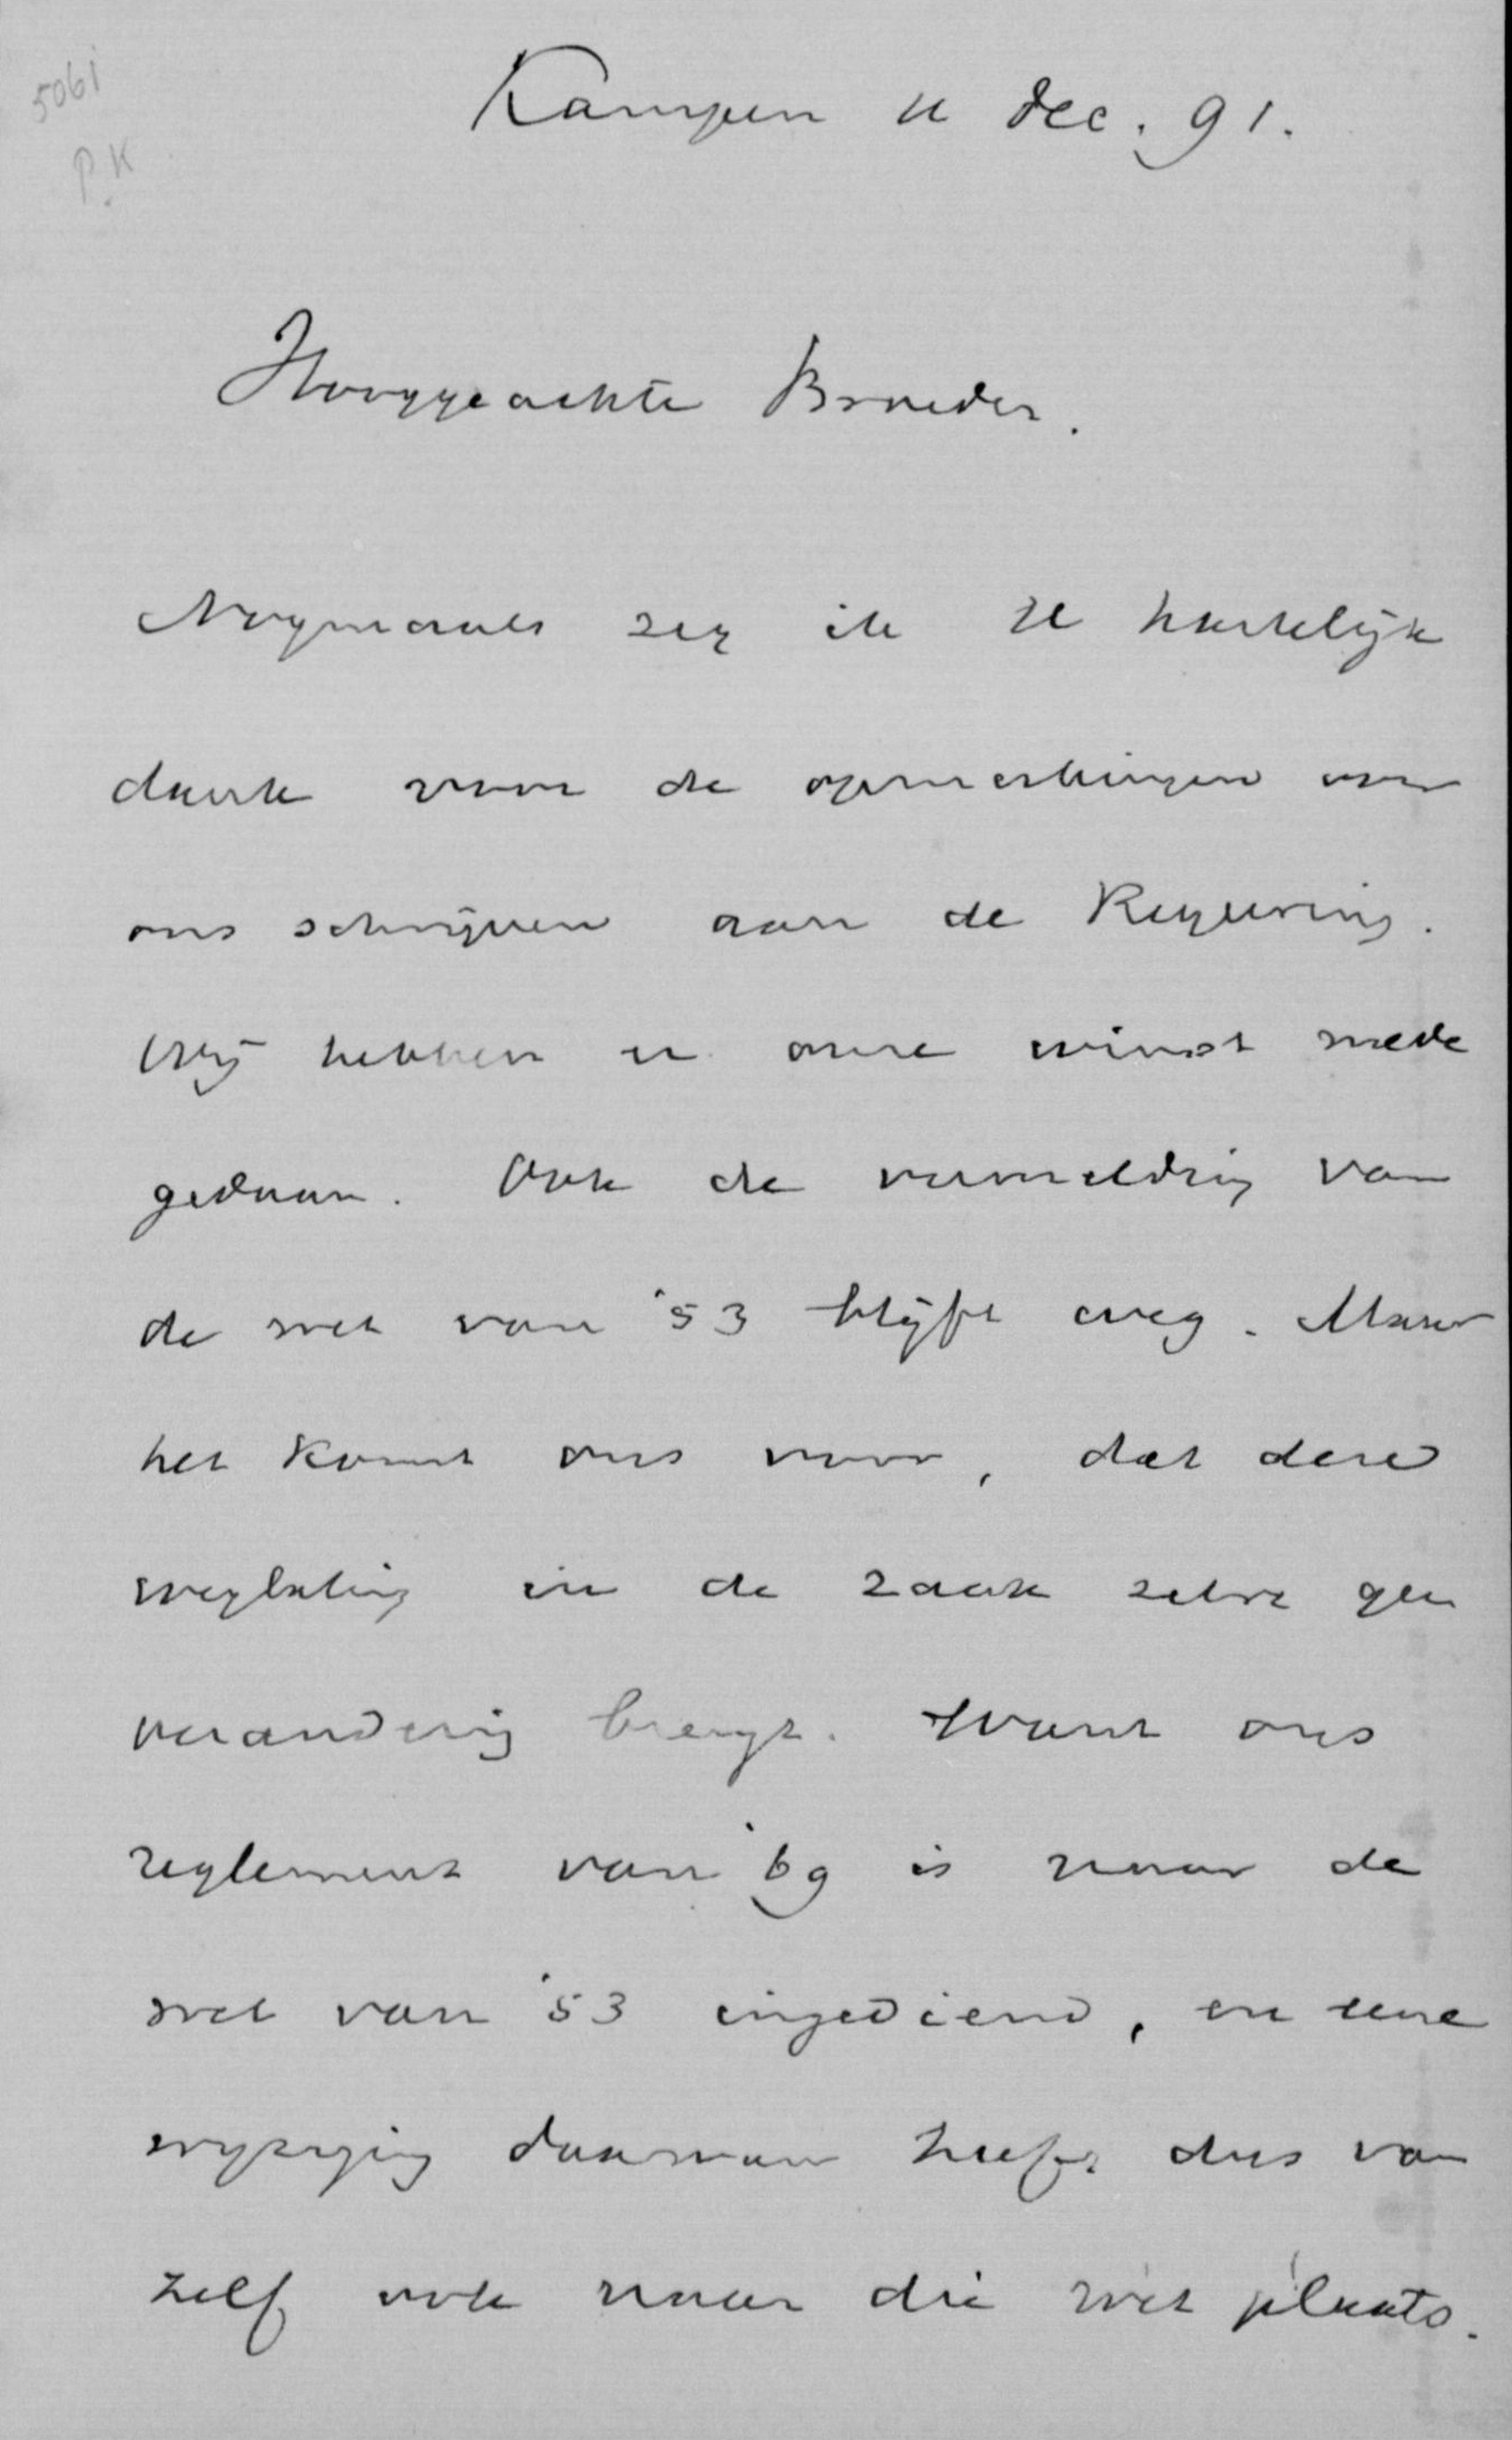 5061
P.K
Kampen 11 Dec. 91.
Hooggeachte Broeder.
Nogmaals zeg ik U hartelijk
dank voor de opmerkingen over
ons schrijven aan de Regeering.
Wij hebben er onze winst mede
gedaan. Ook de vermelding van
de wet van '53 blijft weg. Maar
het komt ons voor, dat deze
weglating in de zaak zelve geen
verandering brengt. Want ons
reglement van '69 is naar de
wet van '53 ingediend, en eene
wijziging daarvan heeft dus van
zelf ook naar die wet plaats.